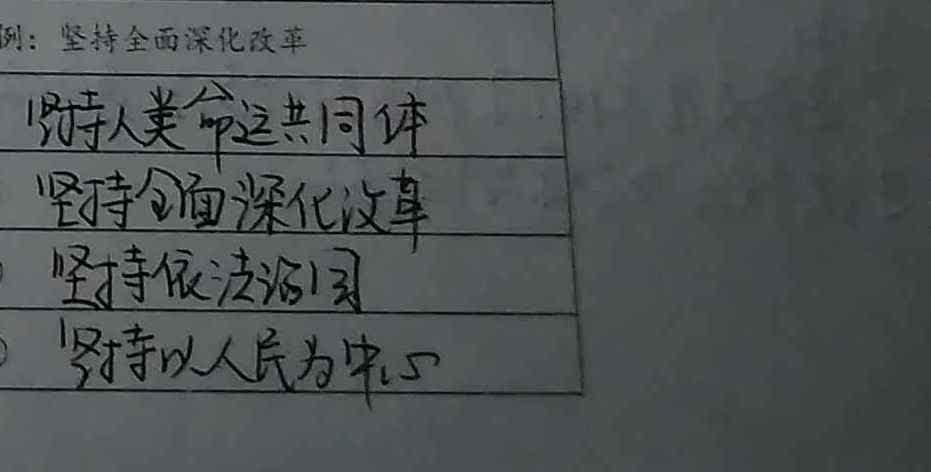 例：坚持全面深化改革
坚持人类命运共同体
坚持全面深化改革
坚持依法治国
坚持以人民为中心